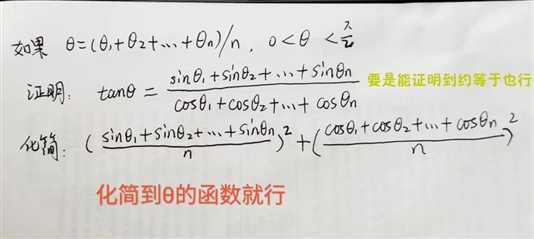 如果 θ=(θ₁+θ₂+...+θn)/n, 0<θ<π/2
证明: tanθ = (sinθ₁+sinθ₂+...+sinθn)/(cosθ₁+cosθ₂+...+cosθn) 要是能证明到约等于也行
化简: ((sinθ₁+sinθ₂+...+sinθn)/n)² + ((cosθ₁+cosθ₂+...+cosθn)/n)²
化简到θ的函数就行